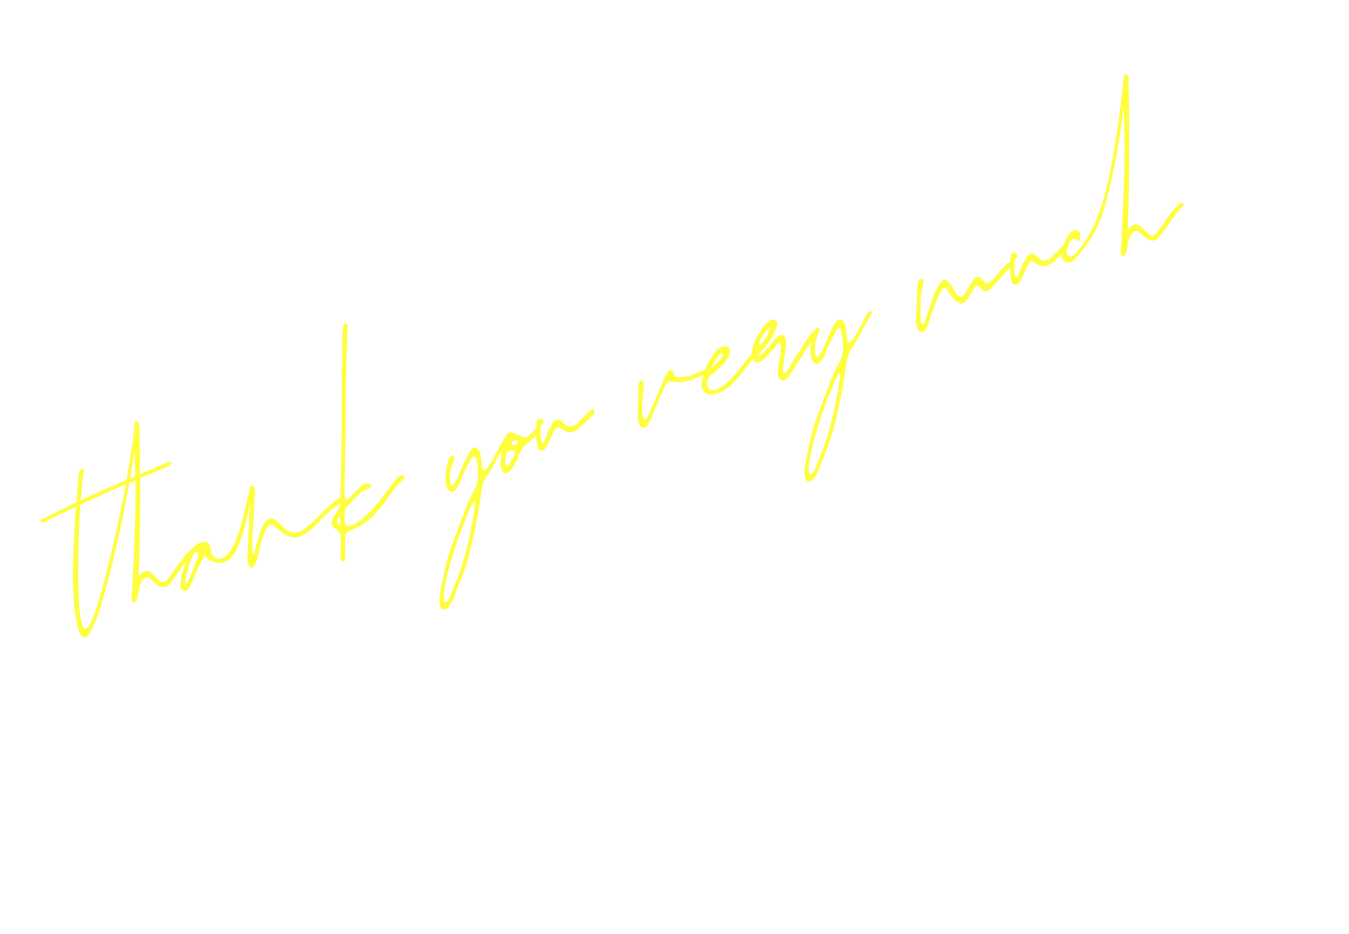 thank you very much